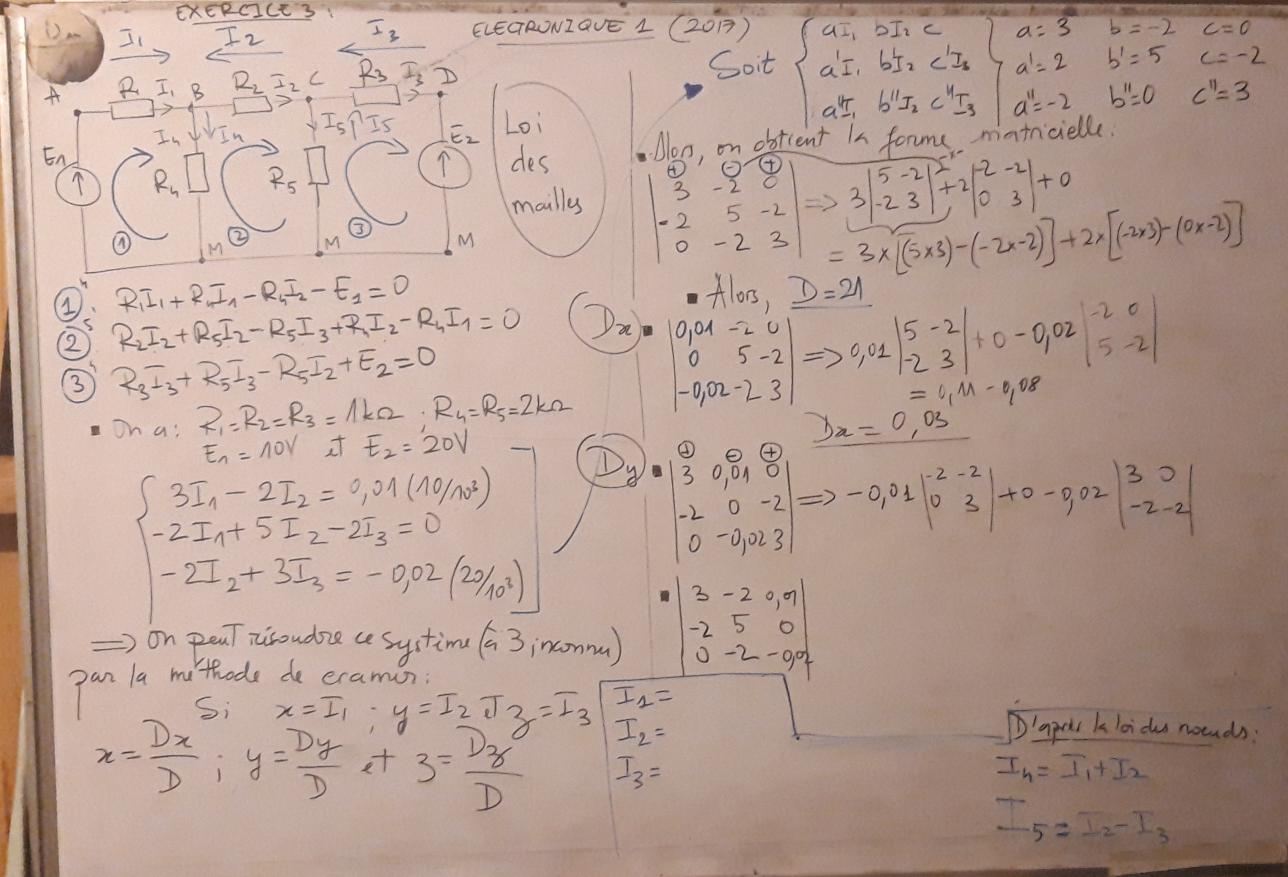 EXERCICE 3:
ELECTRONIQUE 1 (2017)
I1 I2 I3
A R1 I1 B R2 I2 C R3 I3 D
I4 I4 I5 I5
E1 R4 R5 E2
1 2 3
M M M
Loi
des
mailles
1: R1I1 + R4I1 - R4I2 - E1 = 0
2: R2I2 + R5I2 - R5I3 + R4I2 - R4I1 = 0
3: R3I3 + R5I3 - R5I2 + E2 = 0
▪ On a: R1 = R2 = R3 = 1kΩ ; R4 = R5 = 2kΩ
E1 = 10V et E2 = 20V
3I1 - 2I2 = 0,01 (10/10³)
-2I1 + 5I2 - 2I3 = 0
-2I2 + 3I3 = -0,02 (20/10³)
⇒ On peut résoudre ce système (à 3 inconnu)
par la méthode de cramir:
Si x = I1 ; y = I2 et z = I3
x = Dx/D ; y = Dy/D et z = Dz/D
Soit
aI1 bI2 c a = 3 b = -2 c = 0
a'I1 b'I2 c'I3 a' = 2 b' = 5 c = -2
a"I1 b"I2 c"I3 a" = -2 b" = 0 c" = 3
▪ Alors, on obtient la forme matricielle:
+ - +
|3 -2 0|
|-2 5 -2| ⇒ 3 |5 -2; -2 3| + 2 |-2 -2; 0 3| + 0
|0 -2 3|
= 3x[(5x3)-(-2x-2)] + 2x[(-2x3)-(0x-2)]
▪ Alors, D = 21
Dx ▪
|0,01 -2 0|
|0 5 -2| ⇒ 0,01 |5 -2; -2 3| + 0 - 0,02 |-2 0; 5 -2|
|-0,02 -2 3|
= 0,11 - 0,08
Dx = 0,03
+ - +
Dy ▪
|3 0,01 0|
|-2 0 -2| ⇒ -0,01 |-2 -2; 0 3| + 0 - 0,02 |3 0; -2 -2|
|0 -0,02 3|
▪
|3 -2 0,01|
|-2 5 0|
|0 -2 -0,02|
I1 =
I2 =
I3 =
D'après la loi des nœuds:
I4 = I1 + I2
I5 = I2 - I3